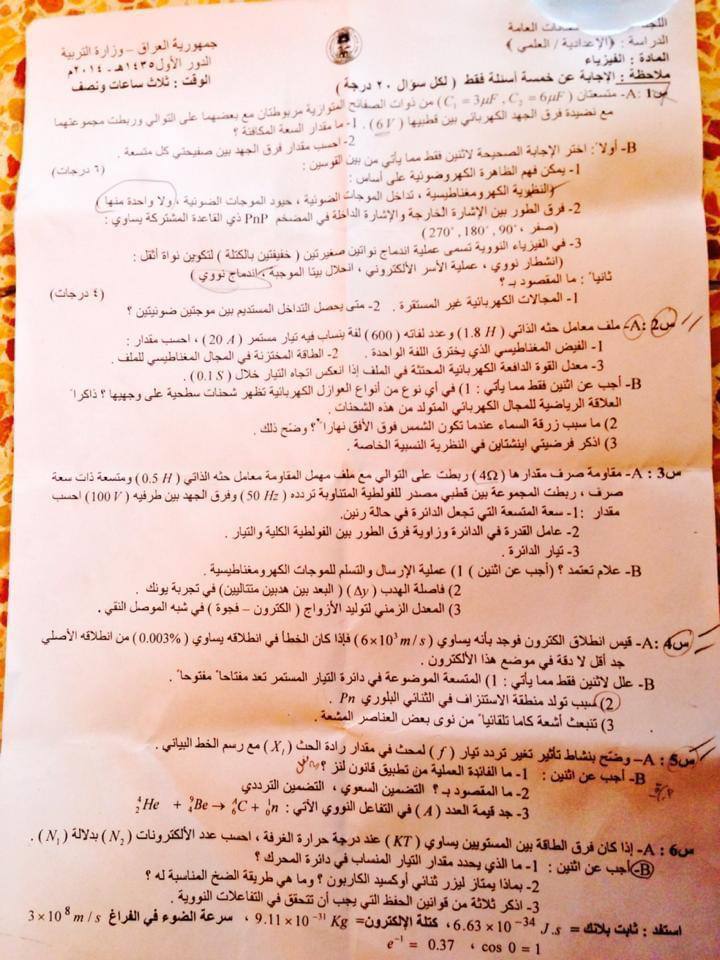 جمهورية العراق – وزارة التربية
الدور الأول ١٤٣٥هـ - ٢٠١٤م
الوقت : ثلاث ساعات ونصف
العامة
الدراسة : (الإعدادية / العلمي)
المادة : الفيزياء
ملاحظة : الإجابة عن خمسة أسئلة فقط ( لكل سؤال ٢٠ درجة )
س1 :A- متسعتان (C1 = 3μF , C2 = 6μF) من ذوات الصفائح المتوازية مربوطتان مع بعضهما على التوالي وربطت مجموعتهما
مع نضيدة فرق الجهد الكهربائي بين قطبيها (6 V) . 1- ما مقدار السعة المكافئة ؟
2- احسب مقدار فرق الجهد بين صفيحتي كل متسعة .
B- أولاً : اختر الإجابة الصحيحة لاثنين فقط مما يأتي من بين القوسين : (٦ درجات)
1- يمكن فهم الظاهرة الكهروضوئية على أساس :
(النظرية الكهرومغناطيسية ، تداخل الموجات الضوئية ، حيود الموجات الضوئية ، ولا واحدة منها )
2- فرق الطور بين الإشارة الخارجة والإشارة الداخلة في المضخم PnP ذي القاعدة المشتركة يساوي :
(صفر ، 90° , 180° , 270°)
3- في الفيزياء النووية تسمى عملية اندماج نواتين صغيرتين ( خفيفتين بالكتلة ) لتكوين نواة أثقل :
(انشطار نووي ، عملية الأسر الألكتروني ، انحلال بيتا الموجبة ، اندماج نووي )
ثانياً : ما المقصود بـ ؟ (٤ درجات)
1- المجالات الكهربائية غير المستقرة . 2- متى يحصل التداخل المستديم بين موجتين ضوئيتين ؟
س2 :A- ملف معامل حثه الذاتي (1.8 H) وعدد لفاته (600) لفة ينساب فيه تيار مستمر (20 A) ، احسب مقدار :
1- الفيض المغناطيسي الذي يخترق اللفة الواحدة . 2- الطاقة المختزنة في المجال المغناطيسي للملف .
3- معدل القوة الدافعة الكهربائية المحتثة في الملف إذا انعكس اتجاه التيار خلال (0.1 S) .
B- أجب عن اثنين فقط مما يأتي : 1) في أي نوع من أنواع العوازل الكهربائية تظهر شحنات سطحية على وجهيها ؟ ذاكراً
العلاقة الرياضية للمجال الكهربائي المتولد من هذه الشحنات .
2) ما سبب زرقة السماء عندما تكون الشمس فوق الأفق نهاراً ؟ وضح ذلك .
3) اذكر فرضيتي اينشتاين في النظرية النسبية الخاصة .
س3 :A- مقاومة صرف مقدارها (4Ω) ربطت على التوالي مع ملف مهمل المقاومة معامل حثه الذاتي (0.5 H) ومتسعة ذات سعة
صرف ، ربطت المجموعة بين قطبي مصدر للفولطية المتناوبة تردده (50 Hz) وفرق الجهد بين طرفيه (100 V) احسب
مقدار :1- سعة المتسعة التي تجعل الدائرة في حالة رنين.
2- عامل القدرة في الدائرة وزاوية فرق الطور بين الفولطية الكلية والتيار .
3- تيار الدائرة .
B- علام تعتمد ؟ (أجب عن اثنين ) 1) عملية الإرسال والتسلم للموجات الكهرومغناطيسية .
2) فاصلة الهدب (Δy) ( البعد بين هدبين متتاليين) في تجربة يونك .
3) المعدل الزمني لتوليد الأزواج ( الكترون – فجوة ) في شبه الموصل النقي .
س4 :A- قيس انطلاق الكترون فوجد بأنه يساوي (6×10³ m/s) فإذا كان الخطأ في انطلاقه يساوي (0.003%) من انطلاقه الأصلي
جد أقل لا دقة في موضع هذا الألكترون .
B- علل لاثنين فقط مما يأتي : 1) المتسعة الموضوعة في دائرة التيار المستمر تعد مفتاحاً مفتوحاً .
2) سبب تولد منطقة الاستنزاف في الثنائي البلوري Pn .
3) تنبعث أشعة كاما تلقائياً من نوى بعض العناصر المشعة .
س5 :A – وضح بنشاط تأثير تغير تردد تيار (f) لمحث في مقدار رادة الحث (XL) مع رسم الخط البياني .
B- أجب عن اثنين : 1- ما الفائدة العملية من تطبيق قانون لنز ؟
2- ما المقصود بـ ؟ التضمين السعوي ، التضمين الترددي
3- جد قيمة العدد (A) في التفاعل النووي الآتي : ⁴₂He + ⁹₄Be → ᴬ₆C + ¹₀n
س6 :A- إذا كان فرق الطاقة بين المستويين يساوي (KT) عند درجة حرارة الغرفة ، احسب عدد الألكترونات (N2) بدلالة (N1) .
B- أجب عن اثنين : 1- ما الذي يحدد مقدار التيار المنساب في دائرة المحرك ؟
2- بماذا يمتاز ليزر ثنائي أوكسيد الكاربون ؟ وما هي طريقة الضخ المناسبة له ؟
3- اذكر ثلاثة من قوانين الحفظ التي يجب أن تتحقق في التفاعلات النووية .
استفد : ثابت بلانك = 6.63×10⁻³⁴ J.s ، كتلة الإلكترون= 9.11×10⁻³¹ Kg ، سرعة الضوء في الفراغ 3×10⁸ m/s
e⁻¹ = 0.37 ، cos 0 = 1